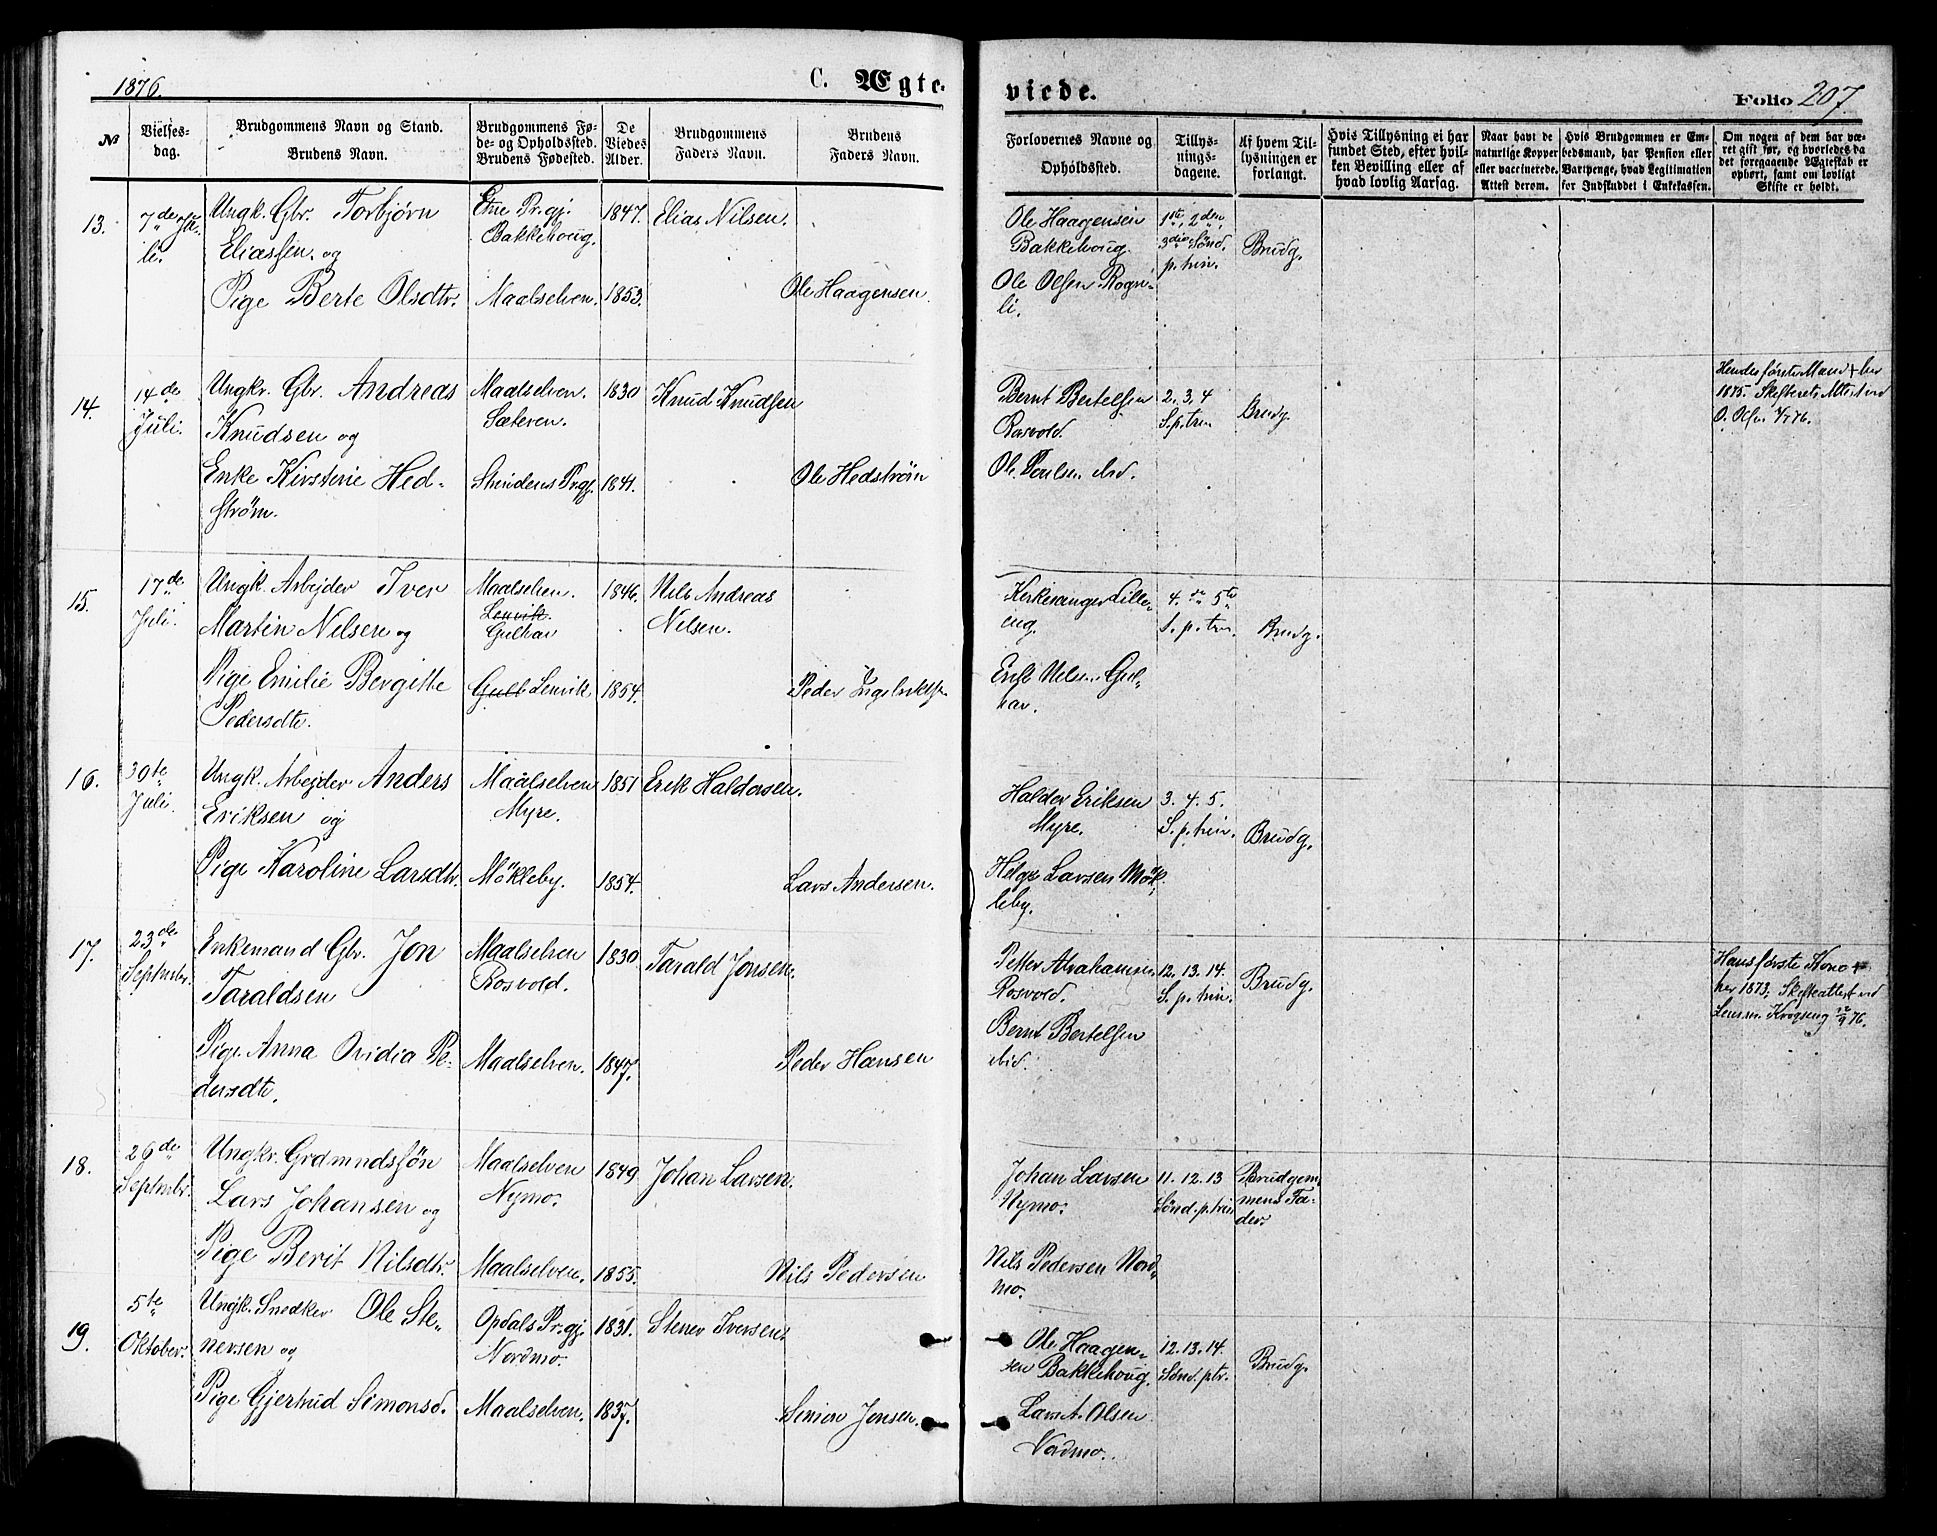 1876.
C. Ægte-
viede.
Folio 207.
№
Vielses-
dag.
Brudgommens Navn og Stand.
Brudens Navn.
Brudgommens Fø-
de- og Opholdsted.
Brudens Fødested.
De
Viedes
Alder.
Brudgommens
Faders Navn.
Brudens
Faders Navn.
Forlovernes Navne og
Opholdssted.
Tillys-
nings-
dagene.
Af hvem Til-
lysningen er
forlangt.
Hvis Tillysning ei har
fundet Sted, efter hvil-
ken Bevilling eller af
hvad lovlig Aarsag.
Naar havt de
naturlige Kopper
eller vaccinerede.
Attest derom.
Hvis Brudgommen er Em-
bedsmand, har Pension eller
Vartpenge, hvad Legitimation
for Indskuddet i Enkekassen.
Om nogen af dem har væ-
ret gift før, og hvorledes da
det foregaaende Ægteskab er
ophørt, samt om lovligt
Skifte er holdt.
13.
7de Ju-
li.
Ungk. Gbr. Torbjørn
Eliassen og
Pige Berte Olsdtr.
Etne Prgj.
Bakkehoug.
Maalselven.
1847.
1853.
Elias Nilsen.
Ole Haagensen.
Ole Haagensen
Bakkehoug.
Ole Olsen Rogn-
li.
1ste, 2den,
3die Sönd.
p. trin.
Brudg.
14.
14de
Juli.
Ungkr. Gbr. Andreas
Knudsen og
Enke Kirstine Hed-
strøm.
Maalselven.
Sæteren.
Strindens Prgj.
1830
1841.
Knud Knudsen
Ole Hedstrøm
Bernt Bertelsen
Rosvold.
Ole Poulsen ibid.
2. 3. 4
S. p. trin
Brudg.
Hendes første Mand + her
1875. Skifterets Attest ved
O. Olsen 1/7 76.
15.
17de
Juli.
Ungk. Arbejder Iver
Martin Nilsen og
Pige Emilie Bergitte
Pedersdtr.
Maalselven.
Lenvik.
Gulhav
Gulh Lenvik
1846.
1854.
Nils Andreas
Nilsen.
Peder Ingebrktsn.
Kirkesanger Lille-
eng.
Enst Nilsen Gul-
hav.
4. de 5te
S. p. trin.
Brudg.
16.
30te
Juli.
Ungk. Arbejder Anders
Eriksen og
Pige Karoline Larsdtr.
Maalselven
Myre.
Mökleby.
1851
1854.
Erik Haldorsen.
Lars Andersen.
Haldor Eriksen
Myre.
Helge Larsen Mök-
leby.
3. 4. 5.
S. p. trin.
Brudg.
17.
23de
Septmbr.
Enkemand Gbr. Jon
Taraldsen
Pige Anna Ovidia Pe-
dersdtr.
Maalselven
Rosvold.
Maalselven.
1830
1847.
Tarald Jonsen.
Peder Hansen
Petter Abrahamsen
Rosvold.
Bernt Bertelsen
ibid.
12. 13. 14.
S. p. trin.
Brudg.
Hans første Kone +
her 1873. Skifteattest ved
Lensm. Krogseng 12/9 76.
18.
26de
Septmbr.
Ungkr. Grdmndssön
Lars Johansen og
Pige Berit Nilsdtr.
Maalselven
Nymo.
Maalselven.
1849
1855.
Johan Larsen.
Nils Pedersen
Johan Larsen
Nymo.
Nils Pedersen Nord-
mo.
11. 12. 13
Sönd. p. trin
Brudgom
mens Fa-
der.
19.
5te
Oktober.
Ungk. Snedker Ole Ste-
nersen og
Pige Gjertrud Simonsd.
Opdals Prgj.
Nordmo.
Maalselven.
1831.
1837.
Stener Iversen.
Simon Jonsen.
Ole Haagen-
sen Bakkehoug.
Lars A. Olsen
Nordmo.
12. 13. 14.
Sönd. ptr.
Brudg.